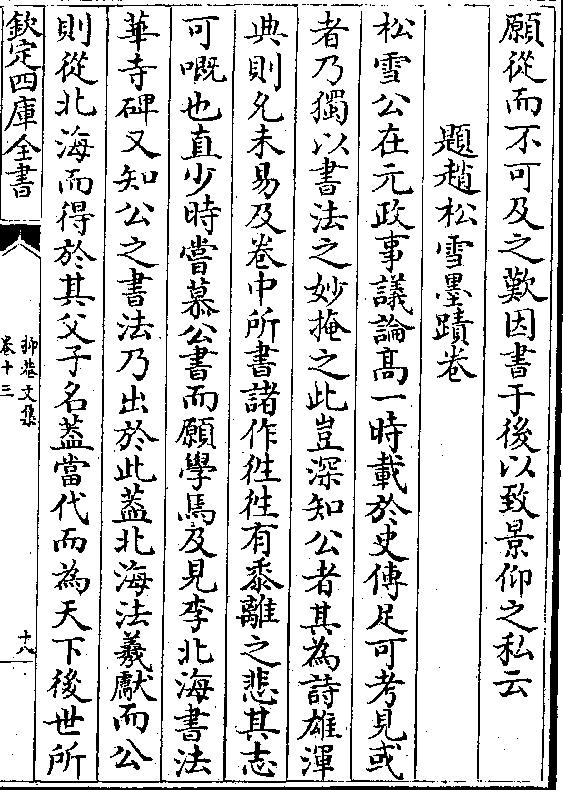 願從而不可及之歎因書于後以致景仰之私云
題趙松雪墨蹟卷
松雪公在元政事議論髙一時載於史傳足可考見或
者乃獨以書法之妙掩之此豈深知公者其為詩雄渾
典則允未易及卷中所書諸作徃徃有黍離之悲其志
可嘅也直少時嘗慕公書而願學焉及見李北海書法
華寺碑又知公之書法乃出於此葢北海法羲獻而公
則從北海而得於其父子名葢當代而為天下後世所
欽定四庫全書
抑菴文集
卷十三
十八